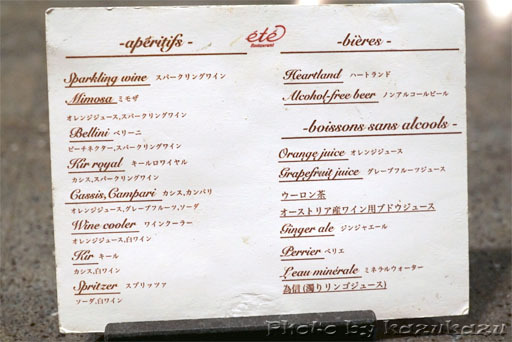 été
Restaurant
-apéritifs -
Sparkling wine スパークリングワイン
Mimosa ミモザ
オレンジジュース,スパークリングワイン
Bellini ベリーニ
ピーチネクター,スパークリングワイン
Kir royal キールロワイヤル
カシス,スパークリングワイン
Cassis,Campari カシス,カンパリ
オレンジジュース,グレープフルーツ,ソーダ
Wine cooler ワインクーラー
オレンジジュース,白ワイン
Kir キール
カシス,白ワイン
Spritzer スプリッツァ
ソーダ,白ワイン
-bières -
Heartland ハートランド
Alcohol-free beer ノンアルコールビール
-boissons sans alcools -
Orange juice オレンジジュース
Grapefruit juice グレープフルーツジュース
ウーロン茶
オーストリア産ワイン用ブドウジュース
Ginger ale ジンジャエール
Perrier ペリエ
L'eau minérale ミネラルウォーター
為信(濁りリンゴジュース)
Photo by kazukazu